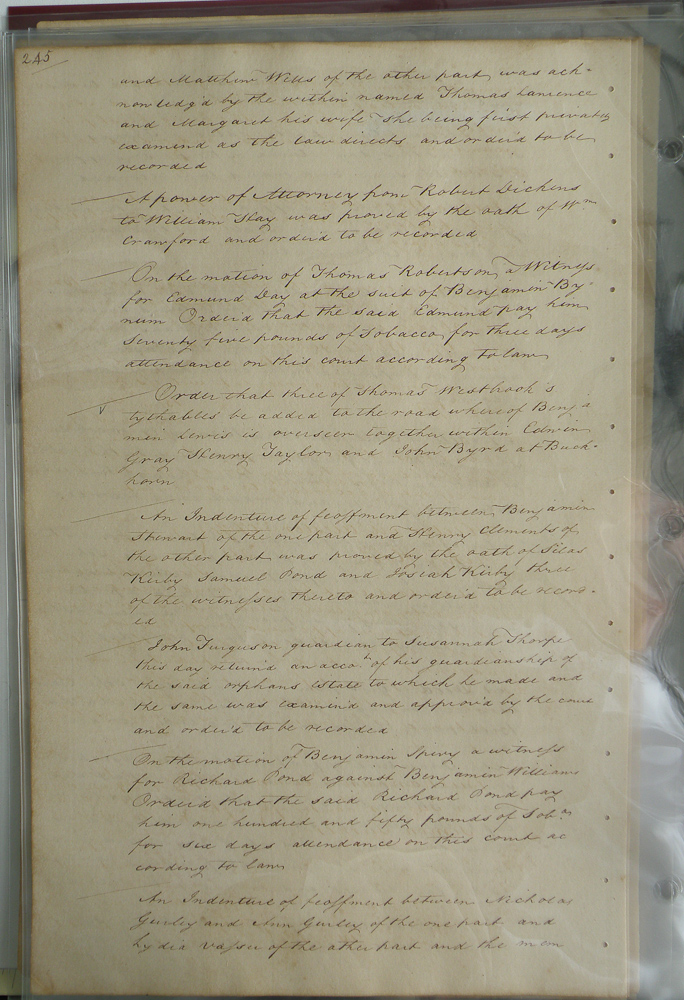 245
and Matthew Wells of the other part was ack-
nowledg'd by the within named Thomas Lawrence
and Margaret his wife she being first privately
examin'd as the law directs and order'd to be
recorded
A power of Attorney from Robert Dickens
to William Hay was proved by the oath of Wm
Crawford and order'd to be recorded
On the motion of Thomas Robertson, a Witness
for Edmund Day at the suit of Benjamin By-
num Order'd that the said Edmund pay him
Seventy five pounds of Tobacco for three days
attendance on this court according to law
Order that three of Thomas Westbrook's
tythables be added to the road whereof Benja
min Lewis is overseer together with Edwin
Gray Henry Taylor and John Byrd at Buck-
horn
An Indenture of feoffment between Benjamin
Stewart of the one part and Henry Clements of
the other part was proved by the oath of Silas
Kirby Samuel Pond and Josiah Kirby three
of the witnesses thereto and order'd to be record-
ed
John Furguson guardian to Susannah Thorpe
this day return'd an accot. of his guardianship of
the said orphans Estate to which he made and
the same was examin'd and approv'd by the court
and order'd to be recorded
On the motion of Benjamin Spivy a witness
for Richard Pond against Benjamin Williams
Order'd that the said Richard Pond pay
him one hundred and fifty pounds of Tobo.
for six days attendance on this court ac
cording to law
An Indenture of feoffment between Nicholas
Gurley and Ann Gurley of the one part and
Lydia Vasser of the other part and the mem